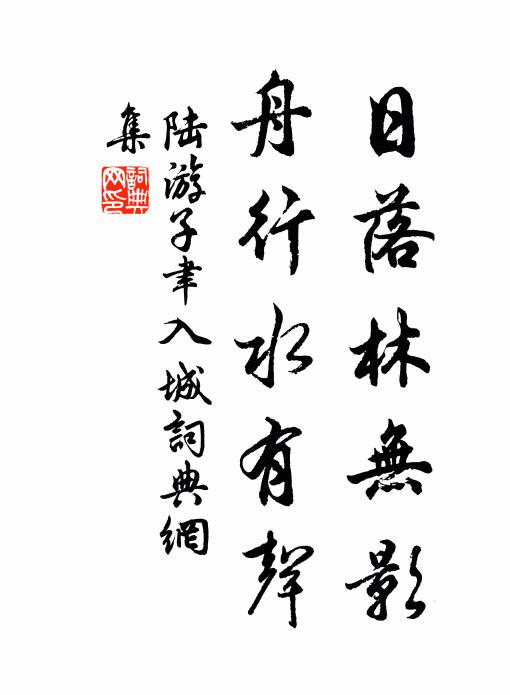 日落林無影
舟行水有聲
陸游子聿入城詞典網
集
詞典網印